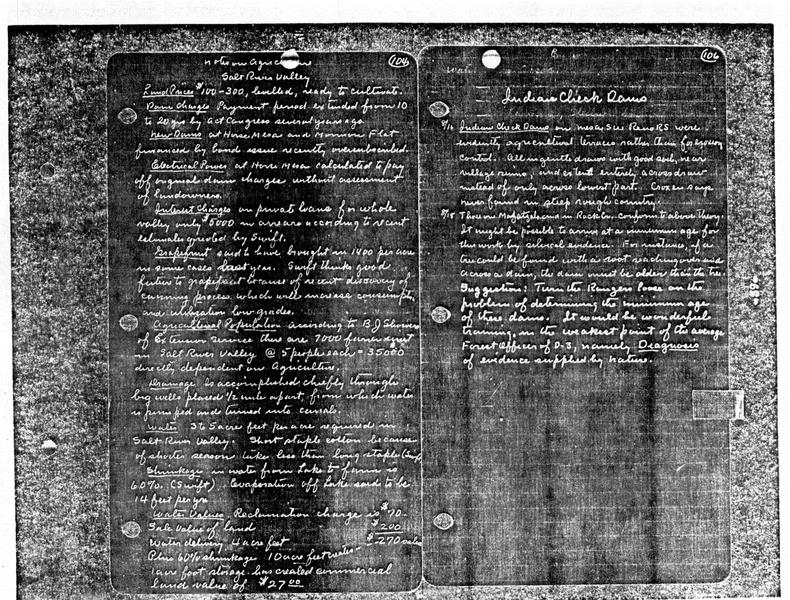 104
Notes on Agriculture
Salt River Valley
Land Prices $100-300, levelled, ready to cultivate.
Dam Charges Payment period extended from 10
to 20 yrs by act Congress several years ago.
New Dams at Horse Mesa and Mormon Flat
financed by bond issue recently oversubscribed.
Electrical Power at Horse Mesa calculated to pay
off original dam charges without assessment
of landowners.
Interest Charges on private loans for whole
valley only $5000 in arrears according to recent
estimates quoted by Swift.
Grapefruit said to have brought in 1400 per acre
in some cases last year. Swift thinks good
future to grapefruit because of recent discovery of
canning process which will increase consumption
and utilization low grades.
Agricultural Population according to B.J.
of Extension Service there are 7000 farms
in Salt River Valley @ 5 people each = 35000
directly dependent on Agriculture.
Drainage is accomplished chiefly through
big wells placed 1/2 mile apart, from which water
is pumped and turned into canals.
Water 3 to 5 acre feet per acre required in
Salt River Valley. Short staple cotton because
of shorter season takes less than long staple
Shrinkage in water from Lake to farm is
60%. (Swift). Evaporation off Lake said to be
14 feet per yr
Water Values Reclamation charge is $70-
Sale Value of land $200
Water delivery 4 acre feet $270 value
Plus 60% shrinkage 10 acre feet creates
1 acre foot storage has created commercial
land value of $27.00
106
Indian Check Dams
Indian Check Dams on mesa S Reno RS were
evidently agricultural terraces rather than for erosion
control. All in gentle draws with good soil, near
village ruins, and extend entirely across draw
instead of only across lowest part. Croxen says
never found in steep rough country.
Those on and in Rock Cr. conform to above theory.
It might be possible to arrive at a minimum age for
this work by silvical evidence. For instance, if a
tree could be found with a root reaching over and
across a dam, the dam must be older than the tree.
Suggestion: Turn the Rangers loose on the
problem of determining the minimum age
of these dams. It would be wonderful
training, in the weakest point of the average
Forest Officer of D-3, namely Diagnosis
of evidence supplied by nature.